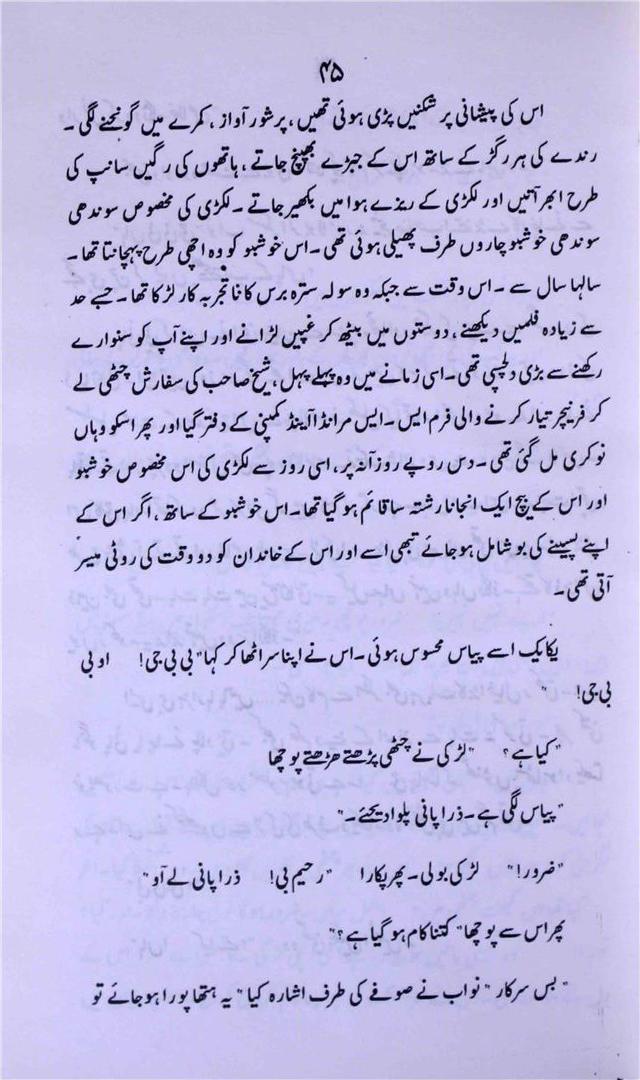 ۴۵
اس کی پیشانی پر شکنیں پڑی ہوئی تھیں، پر شور آواز، کمرے میں گونجنے لگی۔
رندے کی ہر رگڑ کے ساتھ اس کے جبڑے بھینچ جاتے، ہاتھوں کی رگیں سانپ کی
طرح ابھر آتیں اور لکڑی کے ریزے ہوا میں بکھیر جاتے۔ لکڑی کی مخصوص سوندھی
سوندھی خوشبو چاروں طرف پھیلی ہوئی تھی۔ اس خوشبو کو وہ اچھی طرح پہچانتا تھا۔
سالہا سال سے۔ اس وقت سے جبکہ وہ سولہ سترہ برس کا ناتجربہ کار لڑکا تھا۔ جسے حد
سے زیادہ فلمیں دیکھنے، دوستوں میں بیٹھ کر غپیں لڑانے اور اپنے آپ کو سنوارے
رکھنے سے بڑی دلچسپی تھی۔ اسی زمانے میں وہ پہلے پہل، شیخ صاحب کی سفارش چٹھی لے
کر فرنیچر تیار کرنے والی فرم ایس۔ ایس مرانڈا اینڈ کمپنی کے دفتر گیا اور پھر اسکو وہاں
نوکری مل گئی تھی۔ دس روپے روزآنہ پر، اسی روز سے لکڑی کی اس مخصوص خوشبو
اور اس کے بیچ ایک انجانا رشتہ سا قائم ہو گیا تھا۔ اس خوشبو کے ساتھ، اگر اس کے
اپنے پسینے کی بو شامل ہو جائے تبھی اسے اور اس کے خاندان کو دو وقت کی روٹی میسر
آتی تھی۔
یکایک اسے پیاس محسوس ہوئی۔ اس نے اپنا سر اٹھا کر کہا "بی بی جی! او بی
بی جی!"
"کیا ہے؟" لڑکی نے چٹھی پڑھتے پڑھتے پوچھا
"پیاس لگی ہے۔ ذرا پانی پلوا دیجئے۔"
"ضرور!" لڑکی بولی۔ پھر پکارا "رحیم بی! ذرا پانی لے آو"
پھر اس سے پوچھا "کتنا کام ہو گیا ہے؟"
"بس سرکار" نواب نے صوفے کی طرف اشارہ کیا "یہ ہتھا پورا ہو جائے تو